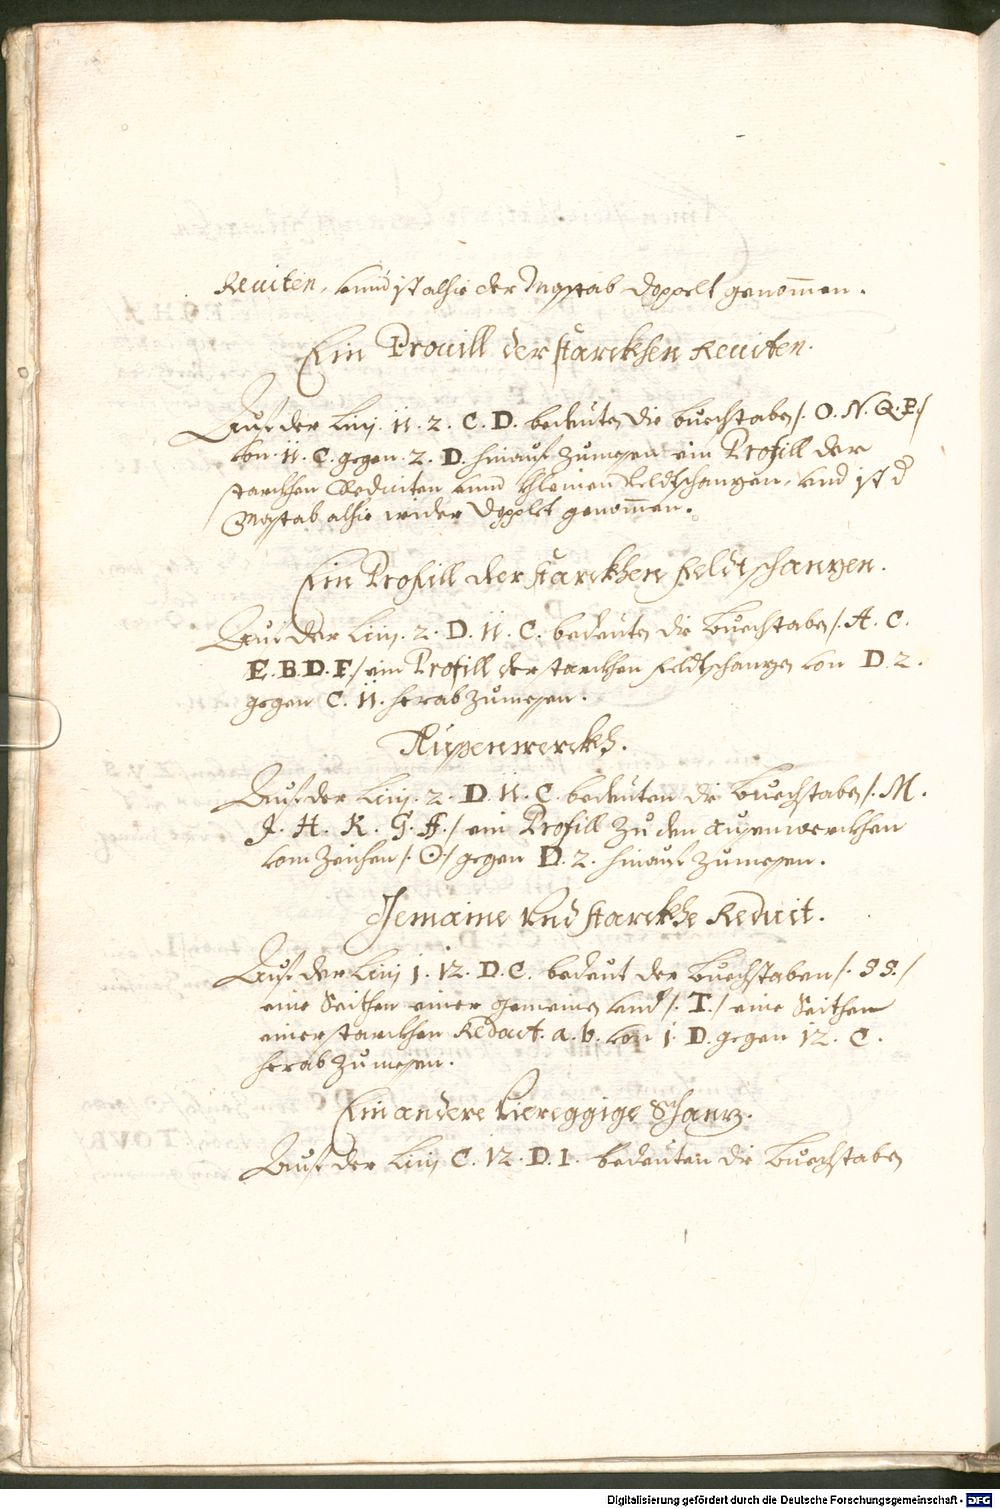 Reuiten, vnnd ist alhie der Maßstab doppelt genom̄en.
Ein Prouill der starckhen Reuiten.
Auf der Linj. 11. 2. C. D. bedeuten die buechstaben /. O. N. Q. P. /
von 11. C. gegen 2. D. hinauf zumeßen ein Profill der
starckhen Reduiten vnnd kleinen Veldtschanzen, vnd ist d
Maßstab alhie wider doppelt genom̄en.
Ein Profill der starckhen Feldtschanzen.
Auf der Linj. 2. D. 11. C. bedeuten die buechstaben /. A. C.
E. B. D. F. / ein Profill der starckhen Feldtschanzen von D. 2.
gegen C. 11. herab zumeßen.
Außenwerckh.
Auf der Linj. 2. D. 11. C. bedeuten die buechstaben /. M.
J. H. K. G. F. / ein Profill zu den Außenwerckhen
vom Zeichen /. ʘ / gegen D. 2. hinauf zumeßen.
Gemaine vnd starckhe Reduit.
Auf der Linj 1. 12. D. C. bedeut der buechstaben /. SS. /
eine Seithen einer gemeinen vnd /. T. / eine Seithen
einer starckhen Reduit. a. b. von 1. D. gegen 12. C.
herab zumeßen.
Ein andere viereggige Schanz.
Auf der Linj C. 12. D. 1. bedeuten die buechstaben
Digitalisierung gefördert durch die Deutsche Forschungsgemeinschaft - DFG